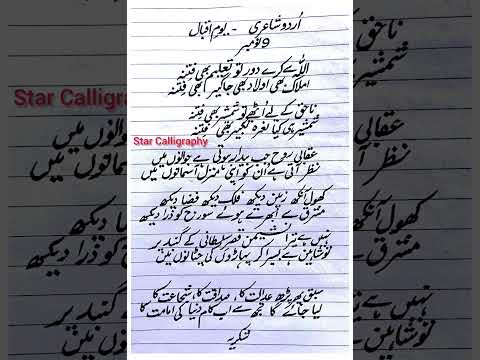 اُردو شاعری - یومِ اقبال
9 نومبر
اللّٰہ سے کرے دور تو تعلیم بھی فتنہ
املاک بھی اولاد بھی جاگیر بھی فتنہ
ناحق کے لیے اُٹھے تو شمشیر بھی فتنہ
شمشیر ہی کیا نعرہ تکبیر بھی فتنہ
Star Calligraphy
عقابی روح جب بیدار ہوتی ہے جوانوں میں
نظر آتی ہے ان کو اپنی منزل آسمانوں میں
کھول آنکھ زمین دیکھ فلک دیکھ فضا دیکھ
مشرق سے اُبھرتے ہوئے سورج کو ذرا دیکھ
نہیں ہے تیرا نشیمن قصرِ سلطانی کے گنبد پر
تو شاہین ہے بسیرا کر پہاڑوں کی چٹانوں میں
سبق پھر پڑھ عدالت کا، صداقت کا، شجاعت کا
لیا جائے گا تجھ سے اب کام دنیا کی امامت کا
شکریہ